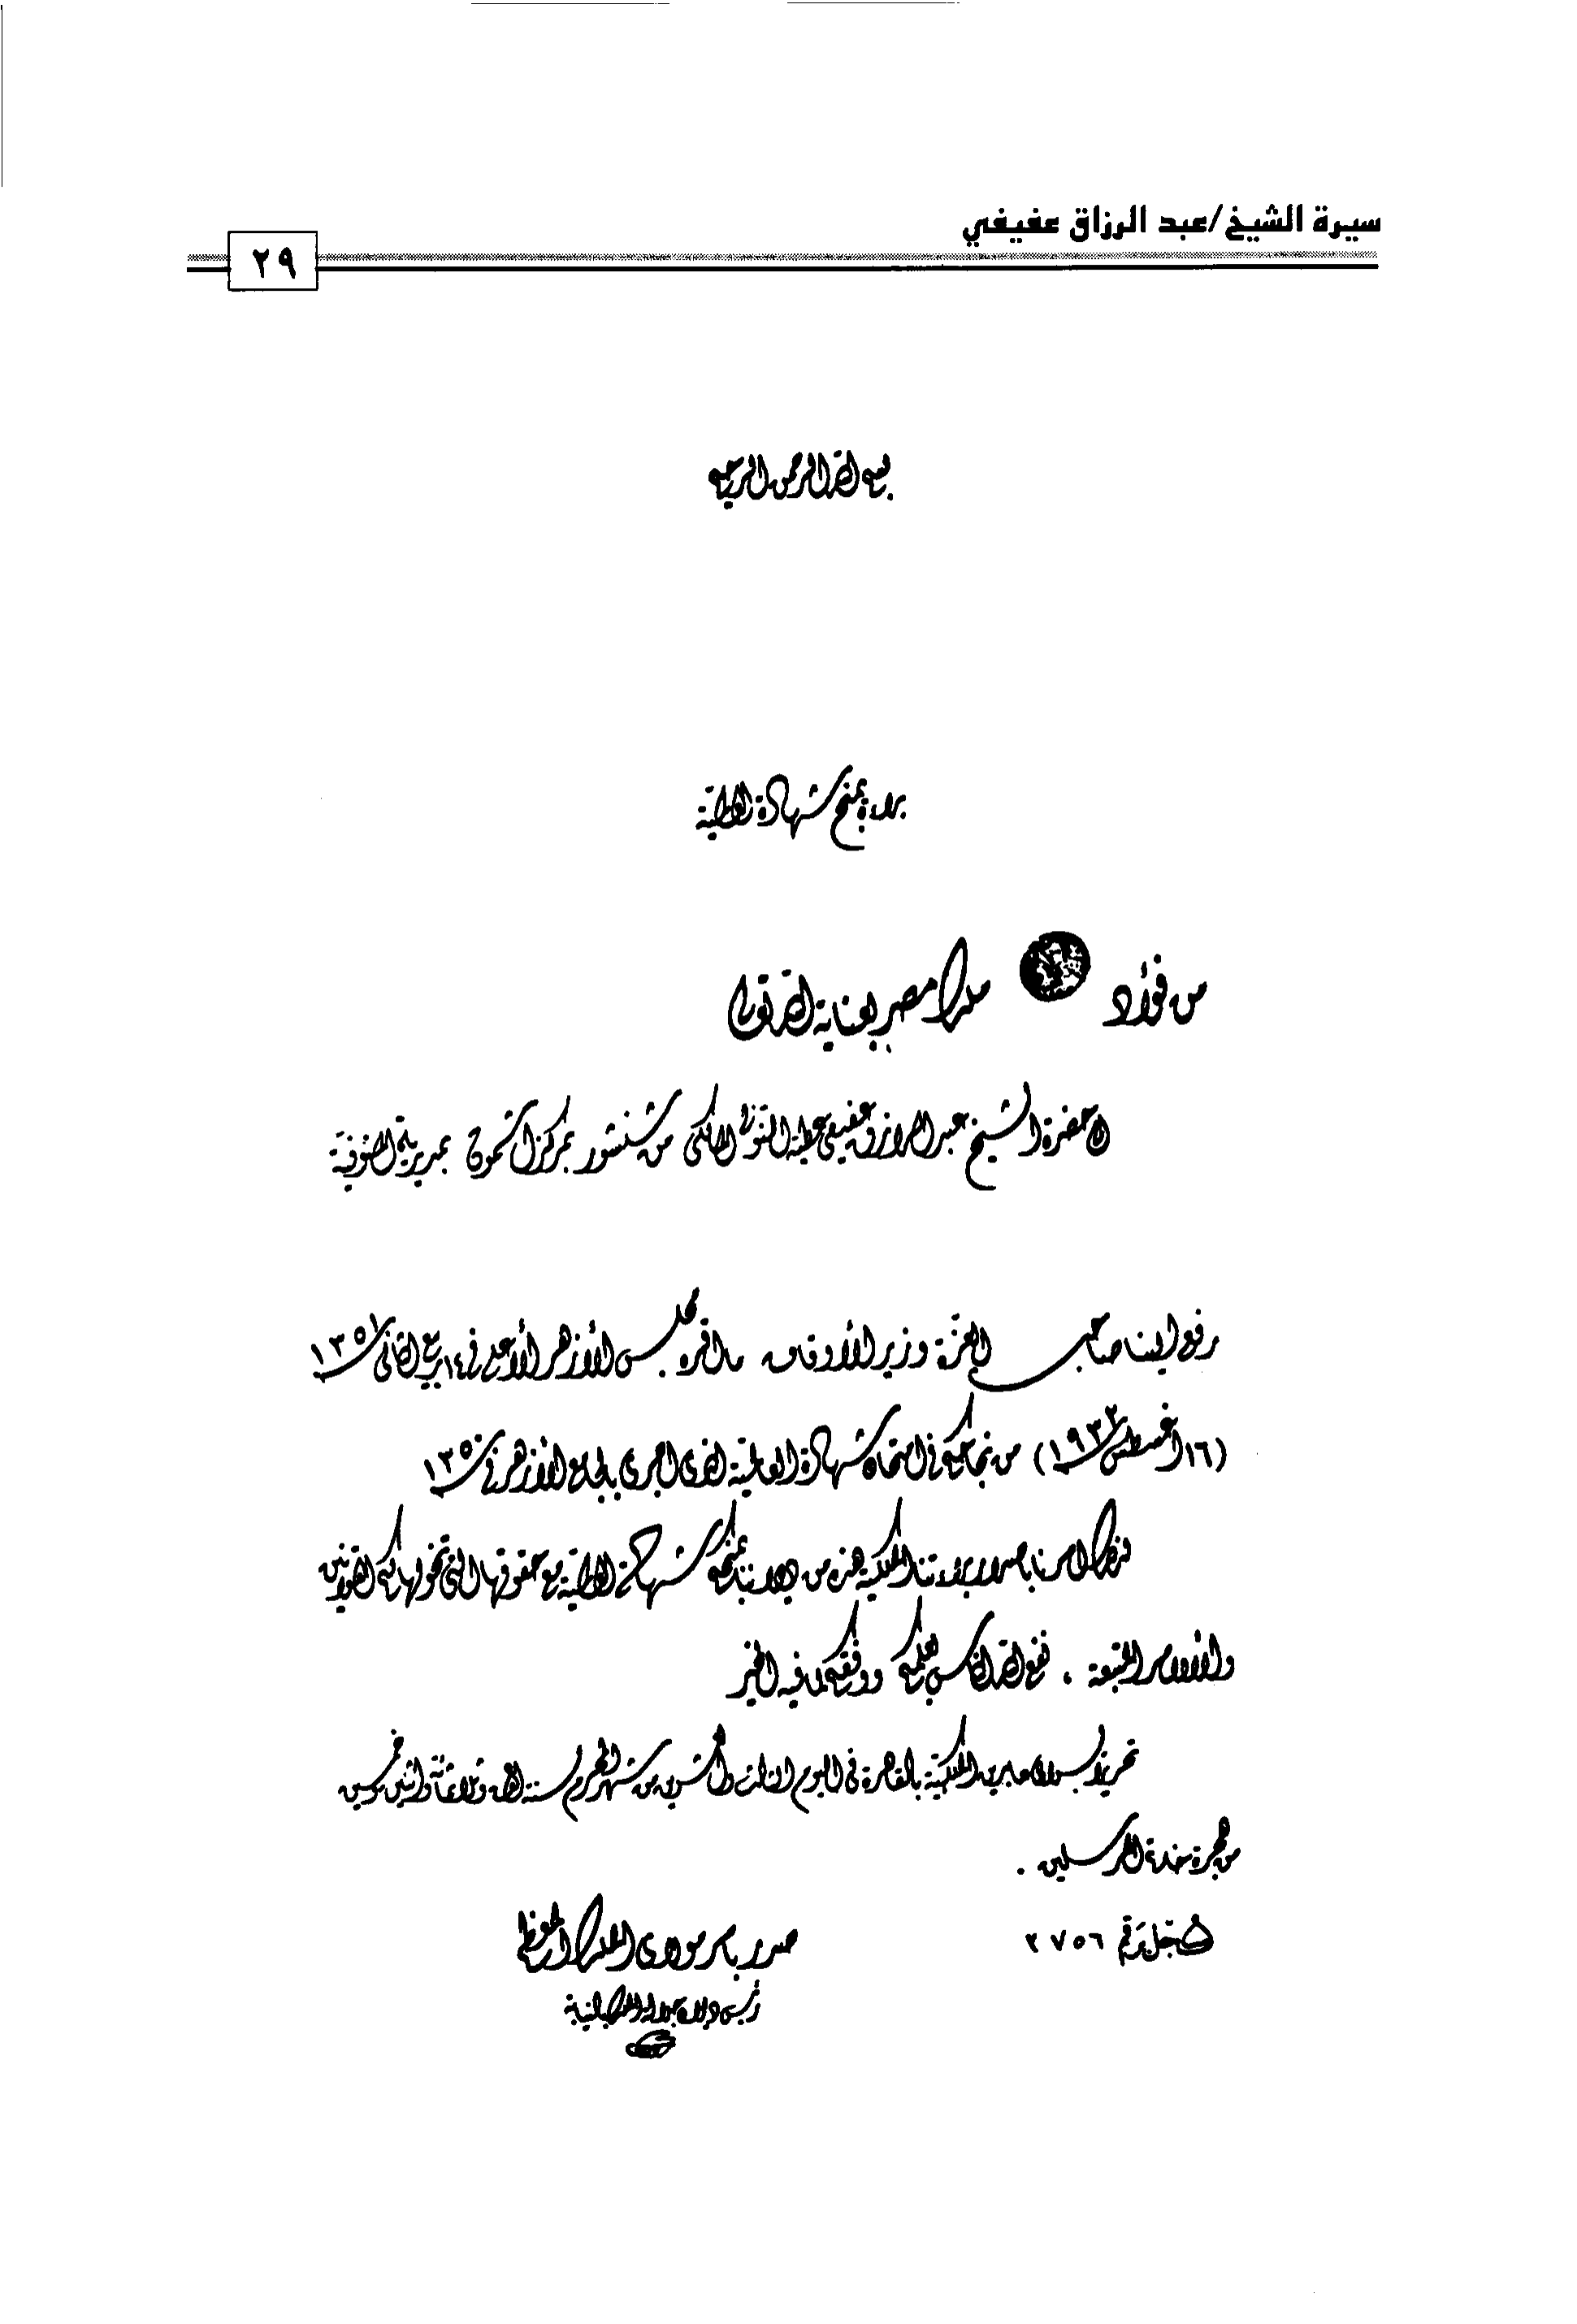 سيرة الشيخ/عبد الرزاق عفيفي
٢٩
بسم الله الرحمن الرحيم
براءة بمنح شهادة العالمية
من فؤاد ملك مصر بعناية الله تعالى
إلى حضرة الشيخ عبد الرازق عفيفى عطية النوبى المالكى من شنشور بمركز اشمون بمديرية المنوفية
رفع إلينا صاحب العزة وزير الأوقاف ما أقره مجلس الأزهر الأعلى فى ١٤ ربيع الثانى سنة ١٣٥١
(١٦ أغسطس سنة ١٩٣٢) من نجاحكم فى امتحان شهادة العالمية الذى أجرى بالجامع الأزهر فى سنة ١٣٥٠
لذلك أمرنا بإصدار براءتنا الملكية هذه من ديواننا بمنحكم شهادة العالمية مع حقوقها التى تخولها لكم القوانين
والأوامر المتبعة . نفع الله الناس بعلمكم ووفقكم لما فيه الخير
تحريرا بسراى عابدين الملكية بالقاهرة فى اليوم الثالث والعشرين من شهر المحرم لسنة ألف وثلاثمائة واثنين وخمسين
من هجرة خاتم المرسلين .
سجل برقم ٢٧٥٦
صدر بأمر مولاى الملك المعظم
رئيس ديوان جلالة الملك بالنيابة